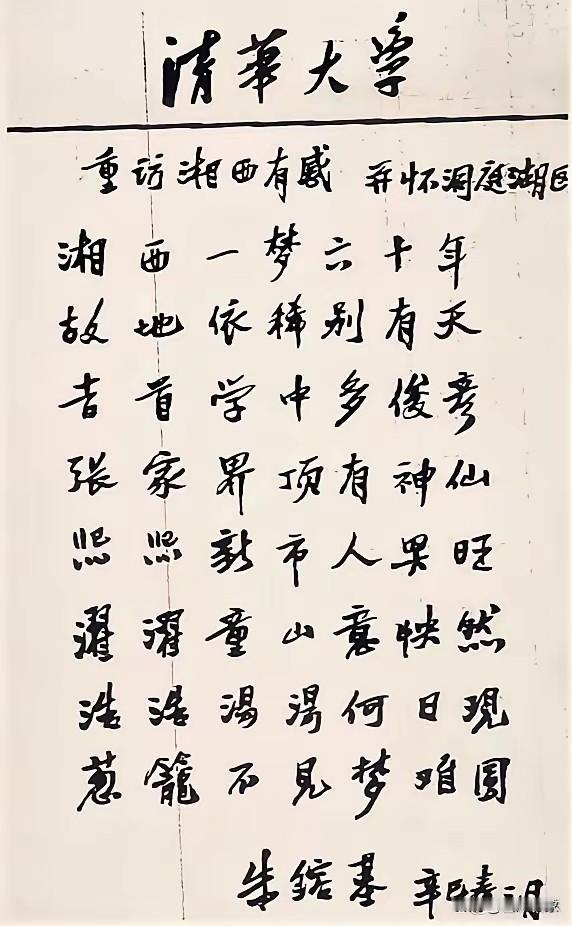 清華大学
重访湘西有感 并怀洞庭湖区
湘西一梦六十年
故地依稀别有天
吉首学中多俊彦
张家界顶有神仙
熙熙新市人兴旺
濯濯童山意怏然
浩浩湯湯何日現
葱籠不见梦难圆
朱鎔基 辛巳春